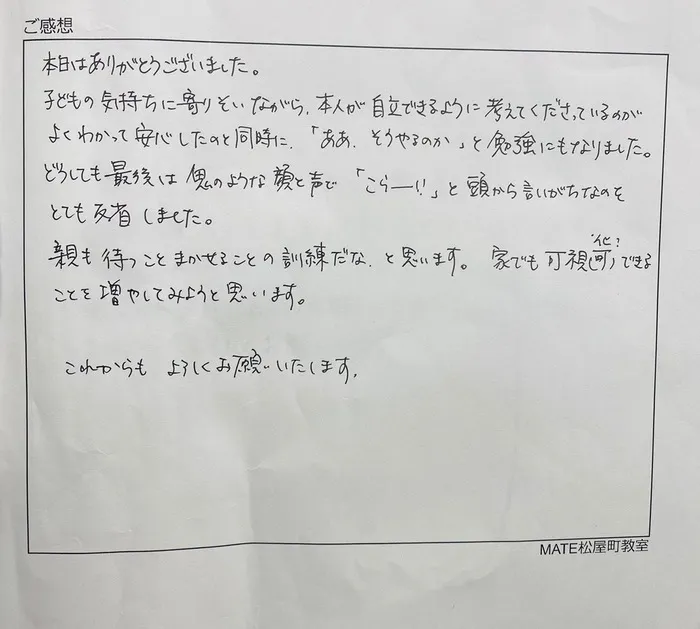 ご感想
本日はありがとうございました。
子どもの気持ちに寄りそいながら、本人が自立できるように考えてくださっているのが
よくわかって安心したのと同時に、「ああ、そうやるのか」と勉強にもなりました。
どうしても最後は鬼のような顔と声で「こらー!!」と頭から言いがちなのを
とても反省しました。
親も待つこと まかせることの訓練だな、と思います。 家でも可視(可)できる
化?
ことを増やしてみようと思います。
これからも よろしくお願いいたします。
MATE松屋町教室